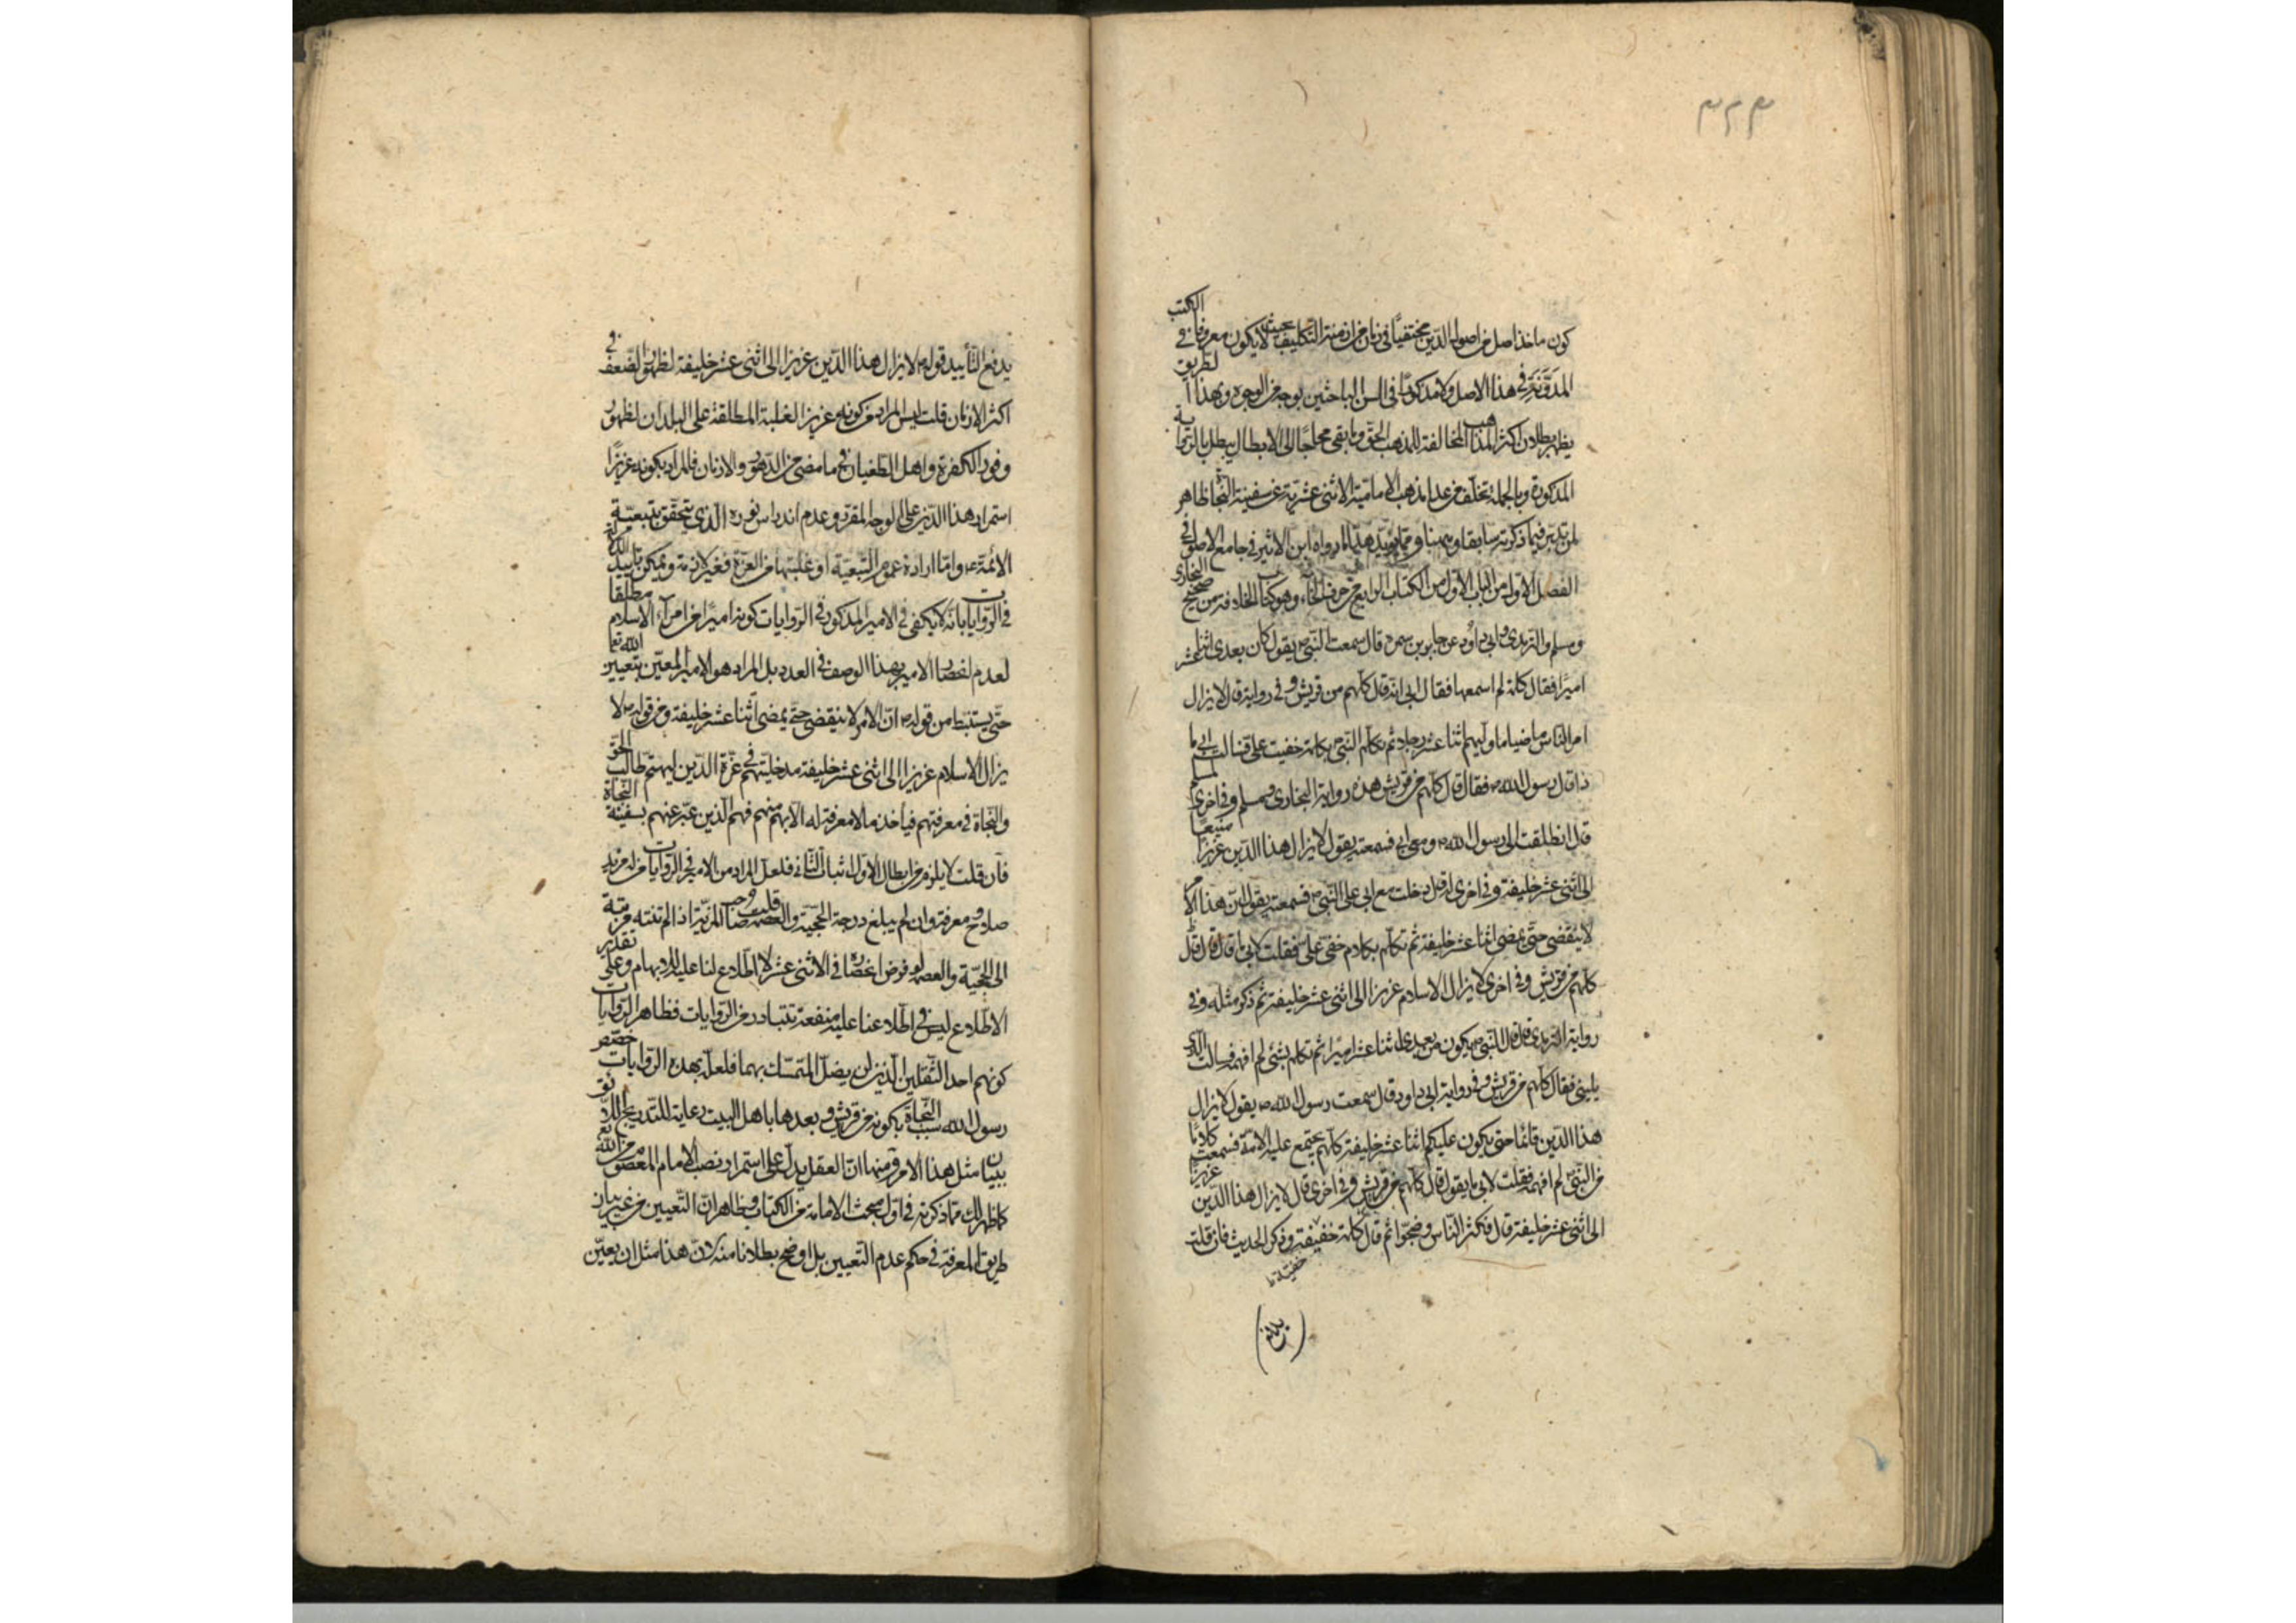 ٣٢٣
كون ماخذ اصل من اصول الدين مختفيًا في زمان من ازمنة التكليف بحيث لا يكون معروفا في الكتب
المدوّنة في هذا الاصل ولا مذكورًا في السن الباحثين بوجه من الوجوه وبهذا الطريق
يظهر بطلان اكثر المذاهب المخالفة للمذهب الحق وما بقى محتاجًا الى الابطال يبطل بالرواية
المذكورة وبالجملة تخلف من عدا مذهب الامامية الاثنى عشرية عن سفينة النجاة ظاهر
لمن تدبر فيما ذكرته سابقا وههنا ومما يؤيد هذا ما رواه ابن الاثير في جامع الاصول في
الفصل الاول من الباب الاول من الكتاب الرابع من حرف الخاء وهو كتاب الخلافة من صحيح البخاري
ومسلم والترمذي وابي داود عن جابر بن سمرة قال سمعت النبي ص يقول كان بعدي اثنا عشر
اميرًا فقال كلمة لم اسمعها فقال ابي انه قال كلهم من قريش وفي رواية قال لا يزال
امر الناس ماضيا ما وليهم اثنا عشر رجلا ثم تكلم النبي ص بكلمة خفيت علي فسالت ابي ما
ذا قال رسول الله ص فقال قال كلهم من قريش هذه رواية البخاري ومسلم وفي اخرى لمسلم
قال انطلقت الى رسول الله ص ومعي ابي فسمعته يقول لا يزال هذا الدين عزيزًا منيعًا
الى اثنى عشر خليفة وفي اخرى له قال دخلت مع ابي على النبي ص فسمعته يقول ان هذا الامر
لا ينقضي حتى يمضي اثنا عشر خليفة ثم تكلم بكلام خفي علي فقلت لابي ما قال قال قال
كلهم من قريش وفي اخرى لا يزال الاسلام عزيزا الى اثنى عشر خليفة ثم ذكر مثله وفي
رواية الترمذي قال قال النبي ص يكون من بعدي اثنا عشر اميرًا ثم تكلم بشئ لم افهمه فسالت الذي
يليني فقال كلهم من قريش وفي رواية ابي داود قال سمعت رسول الله ص يقول لا يزال
هذا الدين قائما حتى يكون عليكم اثنا عشر خليفة كلهم يجتمع عليه الامة فسمعت كلامًا
من النبي لم افهمه فقلت لابي ما يقول قال كلهم من قريش وفي اخرى قال لا يزال هذا الدين عزيزًا
الى اثنى عشر خليفة قال فكثر الناس وضجوا ثم قال كلمة خفيفة وذكر الحديث فان قلت
خفية ظ
يدفع التأييد قوله ص لا يزال هذا الدين عزيزا الى اثنى عشر خليفة لظهور الضعف في
اكثر الازمان قلت ليس المراد من كونه عزيزا الغلبة المطلقة على البلدان لظهور
وفور الكفرة واهل الطغيان في ما مضى من الدهور والازمان فالمراد بكونه عزيزًا
استمرار هذا الدين على الوجه المقرر وعدم اندراس نوره الذي يتحقق بتبعية
الائمة ع واما ارادة عموم التبعية او غلبتها من العزة فغير لازمة ويمكن تاييد الدلالة
في الروايات بانه لا يكفي في الامير المذكور في الروايات كونه اميرًا من امراء الاسلام مطلقا
لعدم انحصار الامير بهذا الوصف في العدد بل المراد هو الامير المعين بتعيين الله تعا
حتى يستنبط من قوله ص ان الامر لا ينقضي حتى يمضي اثنا عشر خليفة ومن قوله ص لا
يزال الاسلام عزيزا الى اثنى عشر خليفة مدخليتهم في عزة الدين ليهتم طالب الحق
والنجاة في معرفتهم فيأخذ ما لا معرفة له الا بهم منهم فهم الذين عبر عنهم بسفينة النجاة
فان قلت لا يلزم من ابطال الاول اثبات الثاني فلعل المراد من الامير في الروايات من له مزيد
صلاح ومعرفة وان لم يبلغ درجة الحجية والعصمة قلت وجب المزية اذا لم تنته مرتبة
الى الحجية والعصمة لو فرض انحصاره في الاثنى عشر لا اطلاع لنا عليه للابهام وعلى تقدير
الاطلاع ليس في اطلاعنا عليه منفعة تتبادر من الروايات فظاهر الروايات
كونهم احد الثقلين الذين لن يضل المتمسك بهما فلعله بهذه الروايات خصص
رسول الله سبب النجاة بكونه من قريش وبعدها باهل البيت رعاية للتدريج
ببيان مثل هذا الامر ومنها ان العقل يدل على استمرار نصب الامام المعصوم من الله
كما ظهر لك مما ذكرته في اول مبحث الامامة من الكتاب وظاهر ان التعيين من غير بيان
طريق المعرفة في حكم عدم التعيين بل اوضح بطلانا منه لان هذا مثل ان يعين